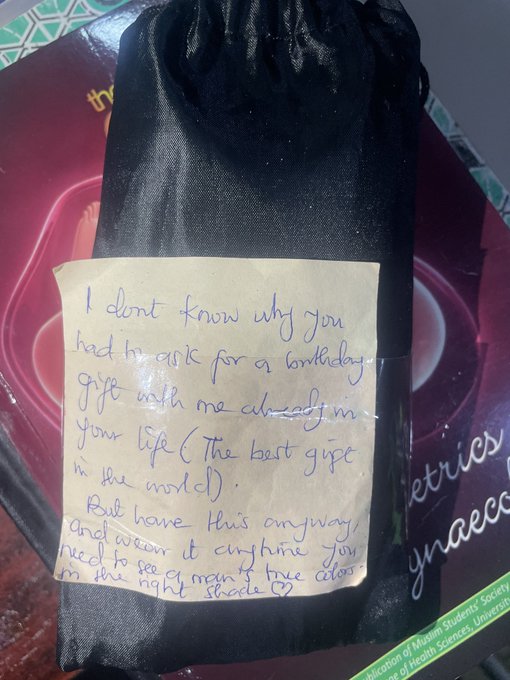 the
I dont know why you
had to ask for a birthday
gift with me already in
your life (The best gift
in the world).
But have this anyway,
and wear it anytime you
need to see a man's true colors.
in the right shade ♡
etrics
ynaeco
ublication of Muslim Students' Society
ge of Health Sciences, Universit